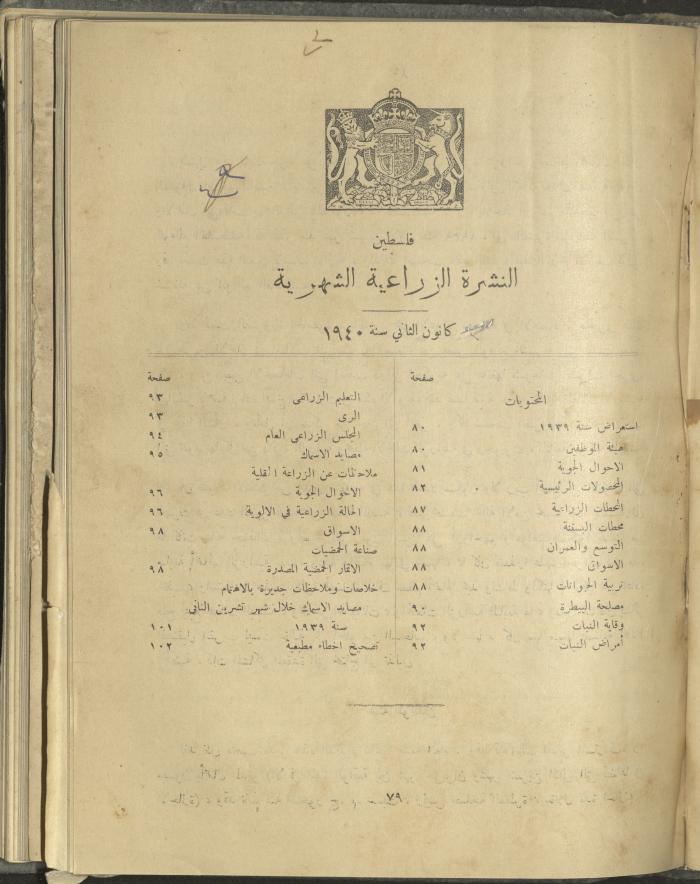 فلسطين
النشرة الزراعية الشهرية
كانون الثاني سنة ١٩٤٠
صفحة
المحتويات
استعراض سنة ١٩٣٩ ٨٠
هيئة الموظفين ٨٠
الاحوال الجوية ٨١
المحصولات الرئيسية ٨٢
المحطات الزراعية ٨٧
محطات البستنة ٨٨
التوسع والعمران ٨٨
الاسواق ٨٨
تربية الحيوانات ٨٨
مصلحة البيطرة ٩٠
وقاية النبات ٩٢
أمراض النبات ٩٢
صفحة
التعليم الزراعي ٩٣
الري ٩٣
المجلس الزراعي العام ٩٤
مصايد الاسماك ٩٥
ملاحظات عن الزراعة المحلية
الاحوال الجوية ٩٦
الحالة الزراعية في الالوية ٩٦
الاسواق ٩٨
صناعة الحمضيات
الاثمار الحمضية المصدرة ٩٨
خلاصات وملاحظات جديرة بالاهتمام
مصايد الاسماك خلال شهر تشرين الثاني
سنة ١٩٣٩ ١٠١
تصحيح اخطاء مطبعية ١٠٢
٧٩